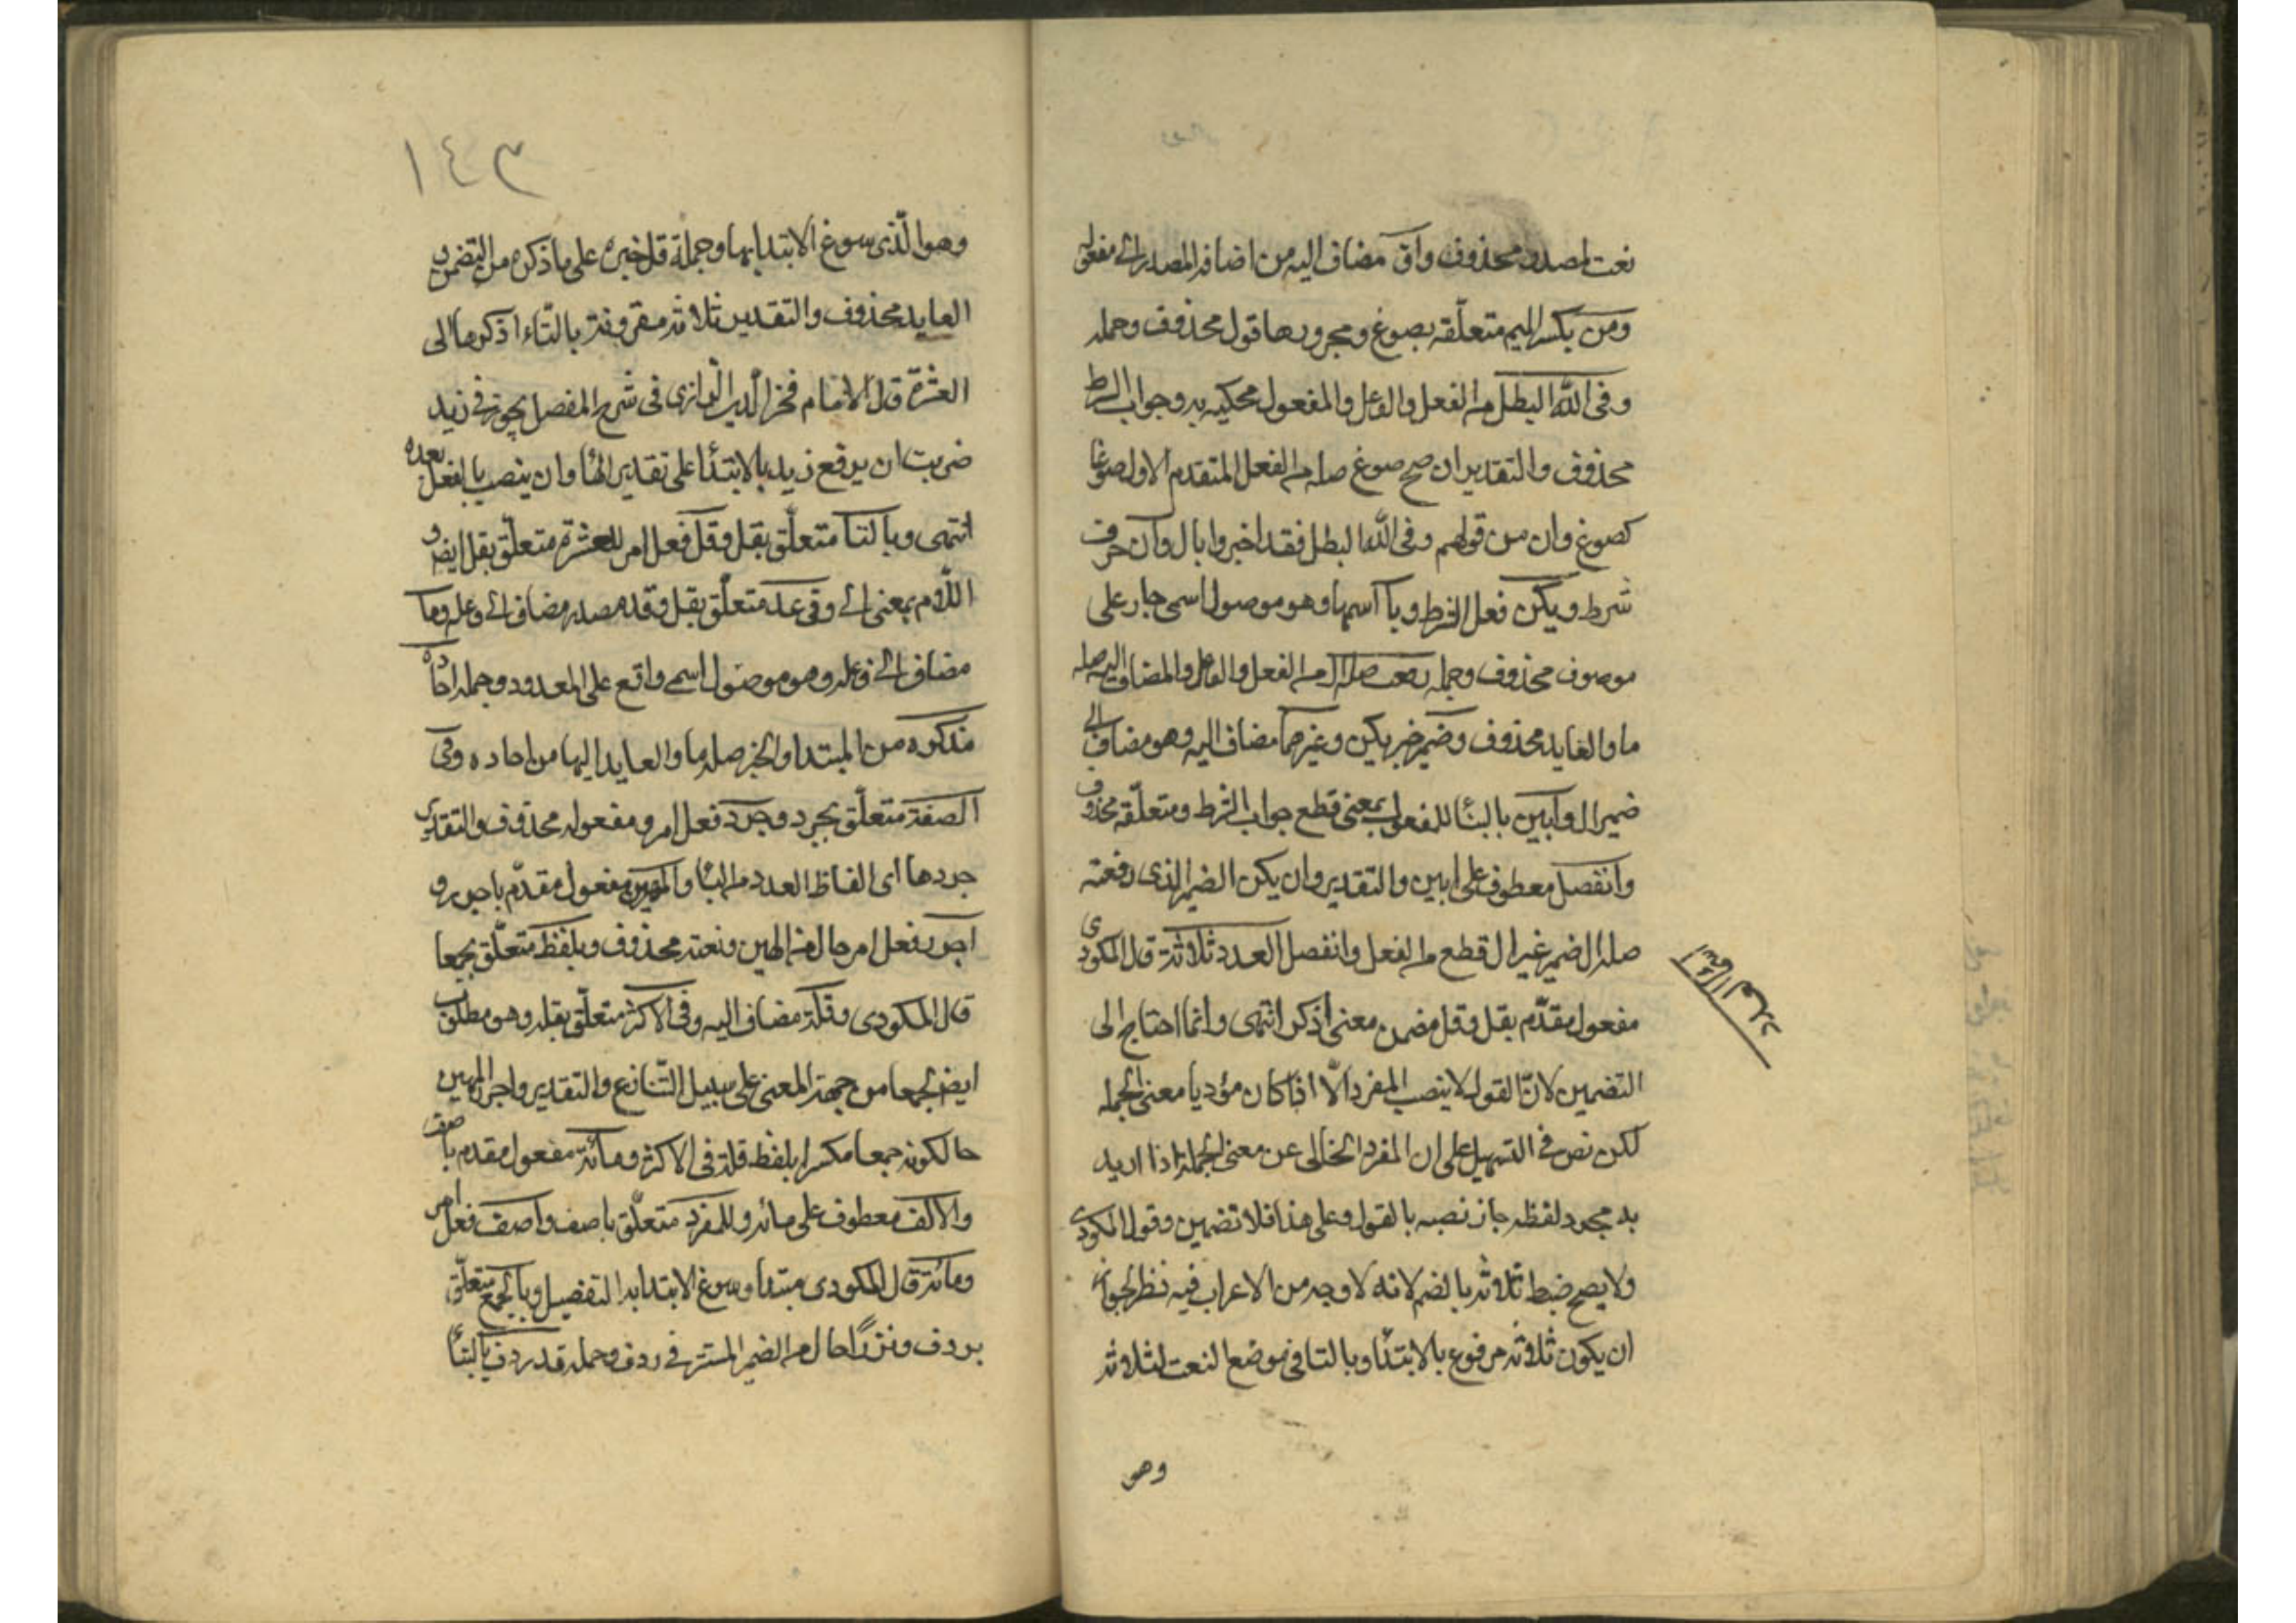 نعت لمصدر محذوف واق مضاف اليه من اضافة المصدر الى مفعوله
ومن بكسر الميم متعلقة بصوغ ومجرورها قول محذوف وجملة
وقى الله البطل من الفعل والفاعل والمفعول محكية به وجواب الشرط
محذوف والتقدير ان صح صوغ صلة من الفعل المتقدم الاول صوغا
كصوغ واق من قولهم وقى الله البطل فقد اخبروا بال وان حرف
شرط ويكن فعل الشرط وما اسمها وهو موصول اسمى جار على
موصوف محذوف وجملة رفعت صلة ال من الفعل والفاعل والمضاف اليه صلة
ما والعايد محذوف وضمير خبر يكن وغيرها مضاف اليه وهو مضاف الى
ضمير ال وابين بالبناء للمفعول بمعنى قطع جواب الشرط ومتعلقه محذوف
وانفصل معطوف على ابين والتقدير وان يكن الضمير الذى رفعته
صلة ال ضمير غير ال قطع من الفعل وانفصل العدد ثلاثة قال المكودى
مفعول مقدم بقل وقل مضمن معنى اذكر انتهى وانما احتاج الى
التضمين لان القول لا ينصب المفرد الا اذا كان مؤديا معنى الجملة
لكن نص فى التسهيل على ان المفرد الخالى عن معنى الجملة اذا اريد
به مجرد لفظه جاز نصبه بالقول وعلى هذا فلا تضمين وقول المكودى
ولا يصح ضبط ثلاثة بالضم لانه لا وجه من الاعراب فيه نظر لجواز
ان يكون ثلاثة مرفوع بالابتداء وبالتا فى موضع النعت لثلاثة
وهو
١٤٣
وهو الذى سوغ الابتدا بها وجملة قل خبره على ما ذكره من التضمن و
العايد محذوف والتقدير ثلاثة مقرونة بالتاء اذكرها الى
العشرة قال الامام فخر الدين الرازى فى شرح المفصل يجوز فى زيد
ضربت ان يرفع زيد بالابتداء على تقدير الهاء وان ينصب بالفعل بعده
انتهى وبالتا متعلق بقل وقل فعل امر للعشرة متعلق بقل ايضا و
اللام بمعنى الى وفى عد متعلق بقل وقد مصدر مضاف الى وعله وما
مضاف الى فعله وهو موصول اسمى واقع على المعدود وجملة احاده
مذكره من المبتدا والخبر صلة ما والعايد اليها من احاده وفى
الصفة متعلق بجرد وجرد فعل امر ومفعوله محذوف والتقدير
جردها اى الفاظ العدد من التاء والمميز مفعول مقدم باجرر و
اجرر فعل امر حال من المميز ونعته محذوف وبلفظ متعلق بجمعا
قال المكودى وقلة مضاف اليه وفى الاكثر متعلق بقلة وهو مطلوب
ايضا لجمعا من جهة المعنى على سبيل التنازع والتقدير واجرر المميز
حال كونه جمعا مكسرا بلفظ قلة فى الاكثر ومائة مفعول مقدم باضف
والالف معطوف على مائة وللمفرد متعلق باضف واضف فعل امر
ومائة قال المكودى مبتدا وسوغ الابتدا به التفصيل وبالجمع متعلق
بردف ونزرا حال من الضمير المستتر فى ردف وجملة قد ردف بالبناء